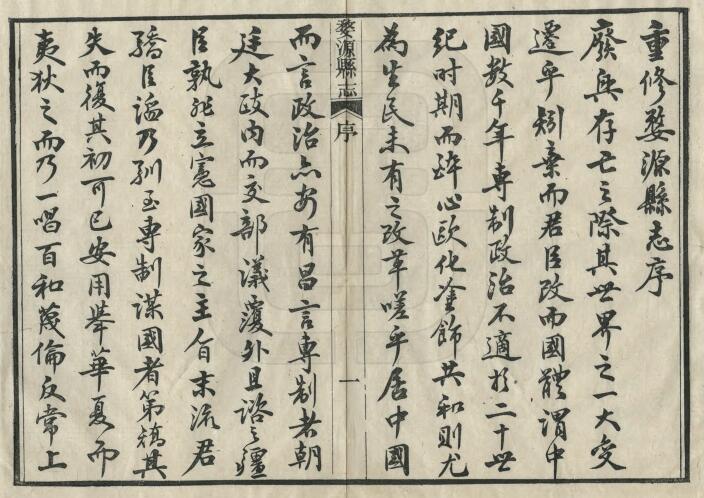 重修婺源縣志序
廢興存亡之際其世界之一大變
遷乎剏棄而君臣改而國體謂中
國數千年專制政治不適於二十世
紀时期而醉心歐化塗飾共和則尤
為生民未有之改革嗟乎居中國
婺源縣志
序
一
而言政治亦安有昌言專制者朝
廷大政內而交部議覆外且諮之疆
臣孰非立憲國家之主旨末流君
驕臣諂乃馴至專制謀國者第矯其
失而復其初可已安用舉華夏而
夷狄之而乃一唱百和蔑倫反常上